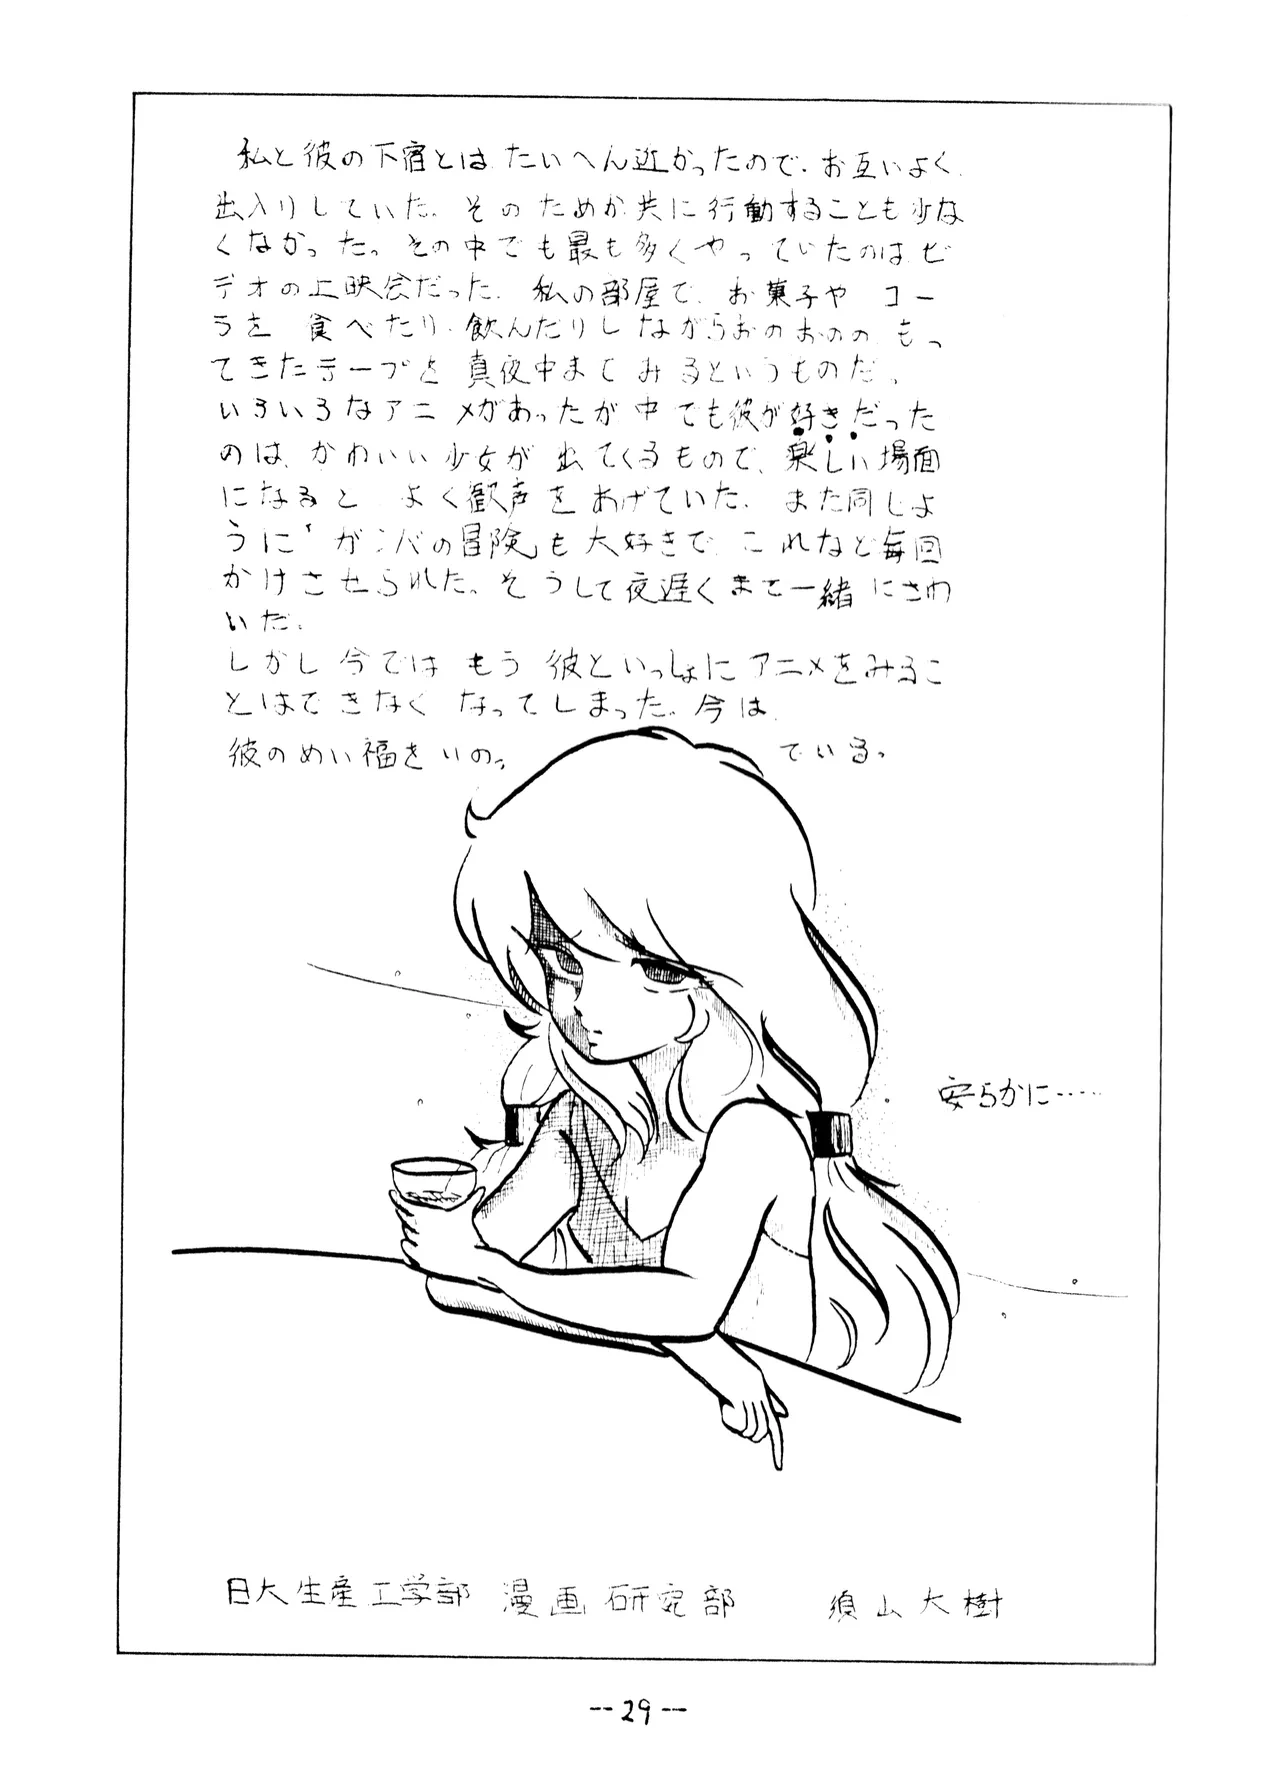 私と彼の下宿とは、たいへん近かったので、お互いよく
出入りしていた。そのためか共に行動することも少な
くなかった。その中でも最も多くやっていたのは、ビ
デオの上映会だった。私の部屋で、お菓子や コー
ラを 食べたり、飲んだりしながらおのおのの もっ
てきたテープを 真夜中まで みるというものだ。
いろいろなアニメがあったが 中でも彼が好きだった
のは、かわいい少女が 出てくるもので、楽しい場面
になると よく歓声をあげていた。また同じよ
うに「ガンバの冒険」も大好きで、これなど毎回
かけさせられた。そうして夜遅くまで一緒にさわ
いだ。
しかし今では もう 彼といっしょにアニメをみるこ
とはできなく なってしまった。今は、
彼のめい福をいのっ でいる。
安らかに……
日大生産工学部 漫画研究部 須山大樹
--29--